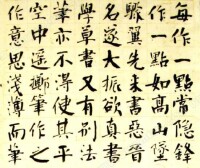 每作一點常隱鋒
作一點如高山墜
驟翼先来書惡晉
名遂大振欲真書
學草書又有別法
筆亦不得使其平
空中遥擲筆作之
作意思淺薄而筆